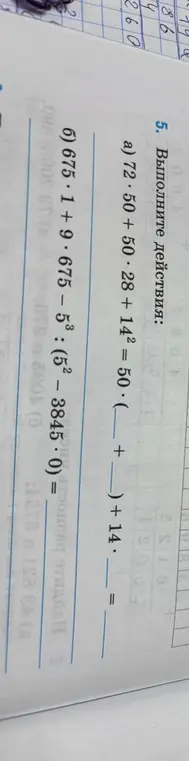 5. Выполните действия:
а) 72 · 50 + 50 · 28 + 14² = 50 · (___ + ___) + 14 · ___ = ___
б) 675 · 1 + 9 · 675 − 5³ : (5² − 3845 · 0) = ___